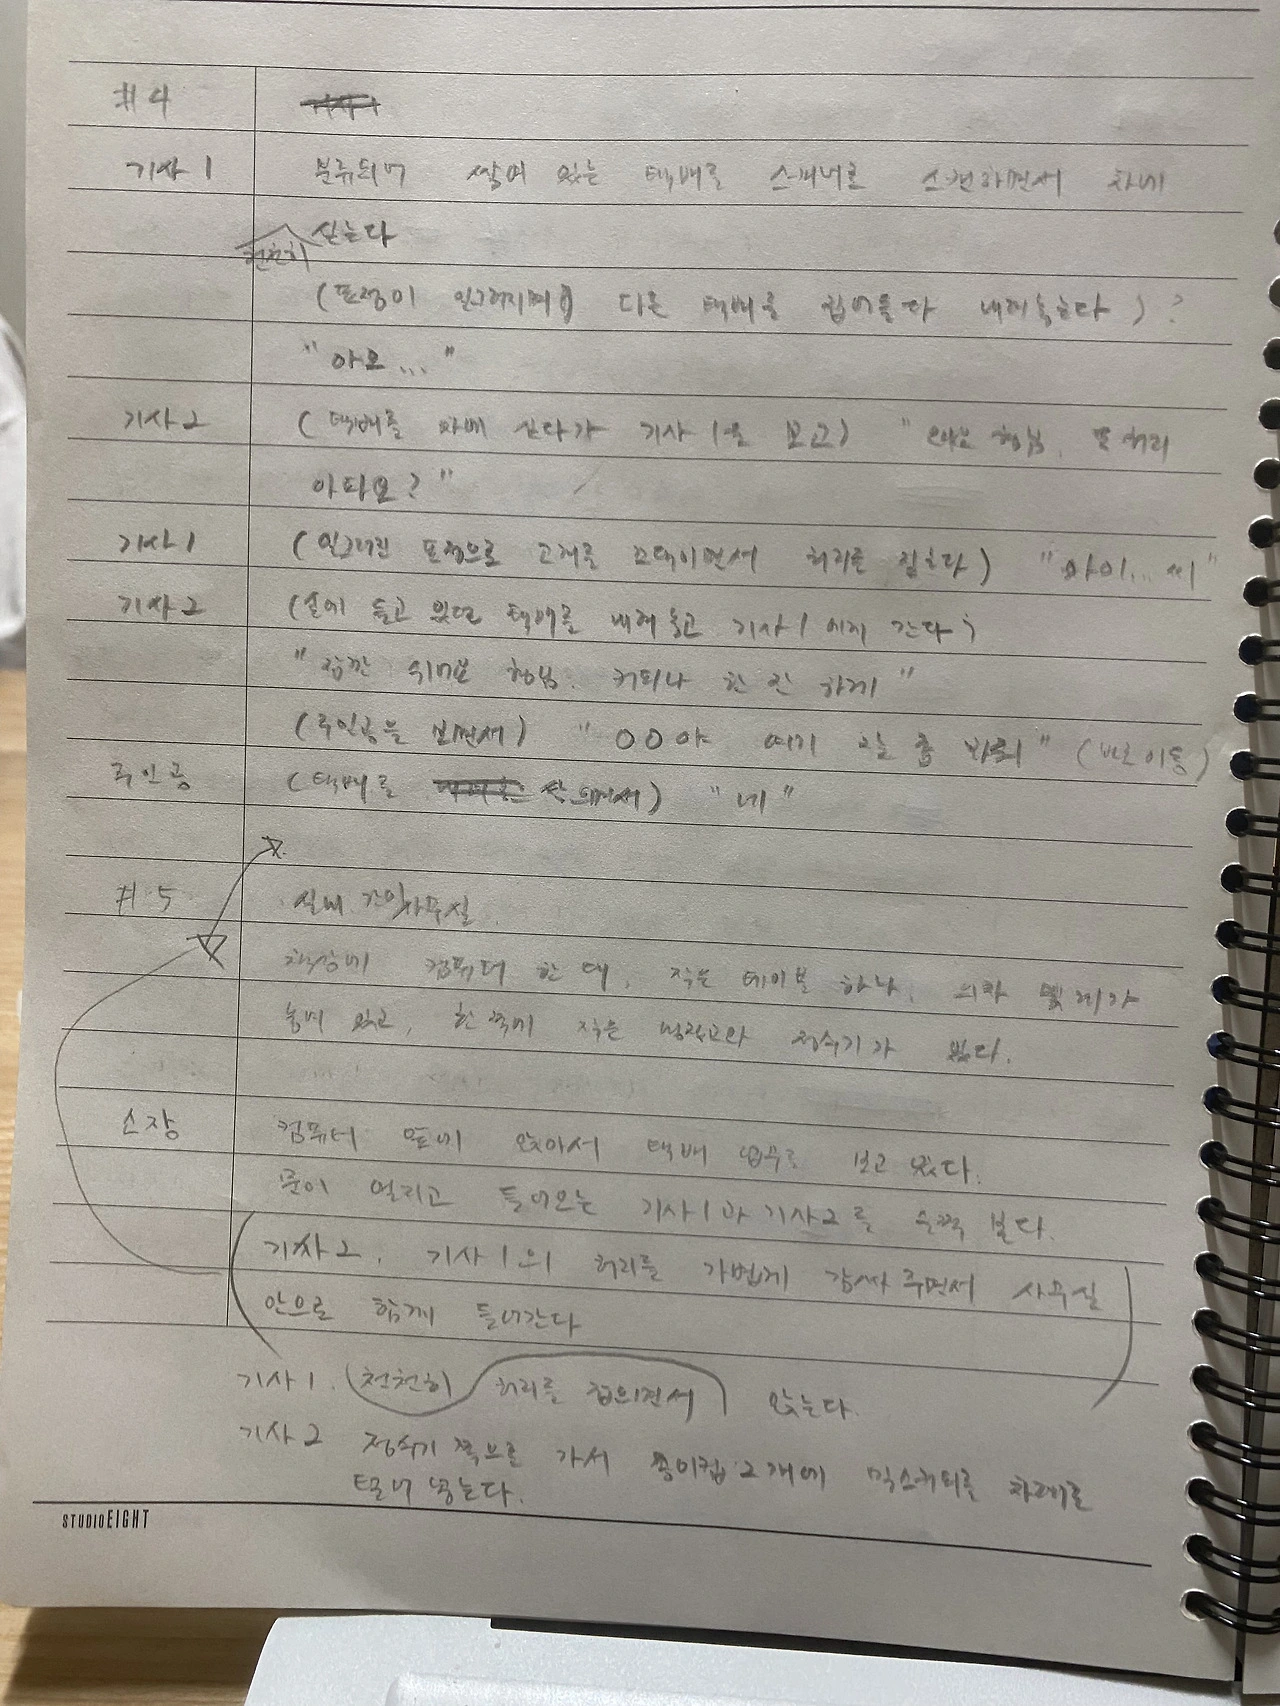 #4
기사1 분류되어 쌓여 있는 택배를 스캐너로 스캔하면서 차에
싣는다
천천히
(표정이 일그러지며) 다른 택배를 집어들다 내려놓는다) ?
"아오..."
기사2 (택배를 차에 싣다가 기사1을 보고) " 형님, 또 허리
아파요?"
기사1 (일그러진 표정으로 고개를 끄덕이면서 허리를 짚는다) "아이... 씨"
기사2 (손에 들고 있던 택배를 내려놓고 기사1에게 간다)
"잠깐 쉬어요 형님. 커피나 한 잔 하게"
(주인공을 보면서) "OO야 여기 좀 봐줘" (바로 이동)
주인공 (택배를 ) "네"
#5 실내 간이사무실.
책상에 컴퓨터 한 대, 작은 테이블 하나, 의자 몇 개가
놓여 있고, 한 쪽에 작은 냉장고와 정수기가 있다.
소장 컴퓨터 앞에 앉아서 택배 업무를 보고 있다.
문이 열리고 들어오는 기사1과 기사2를 슬쩍 본다.
(기사2, 기사1의 허리를 가볍게 감싸 주면서 사무실
안으로 함께 들어간다)
기사1. (천천히 허리를 짚으면서) 앉는다.
기사2 정수기 쪽으로 가서 종이컵 2개에 믹스커피를 차례로
털어 넣는다.
STUDIO EIGHT